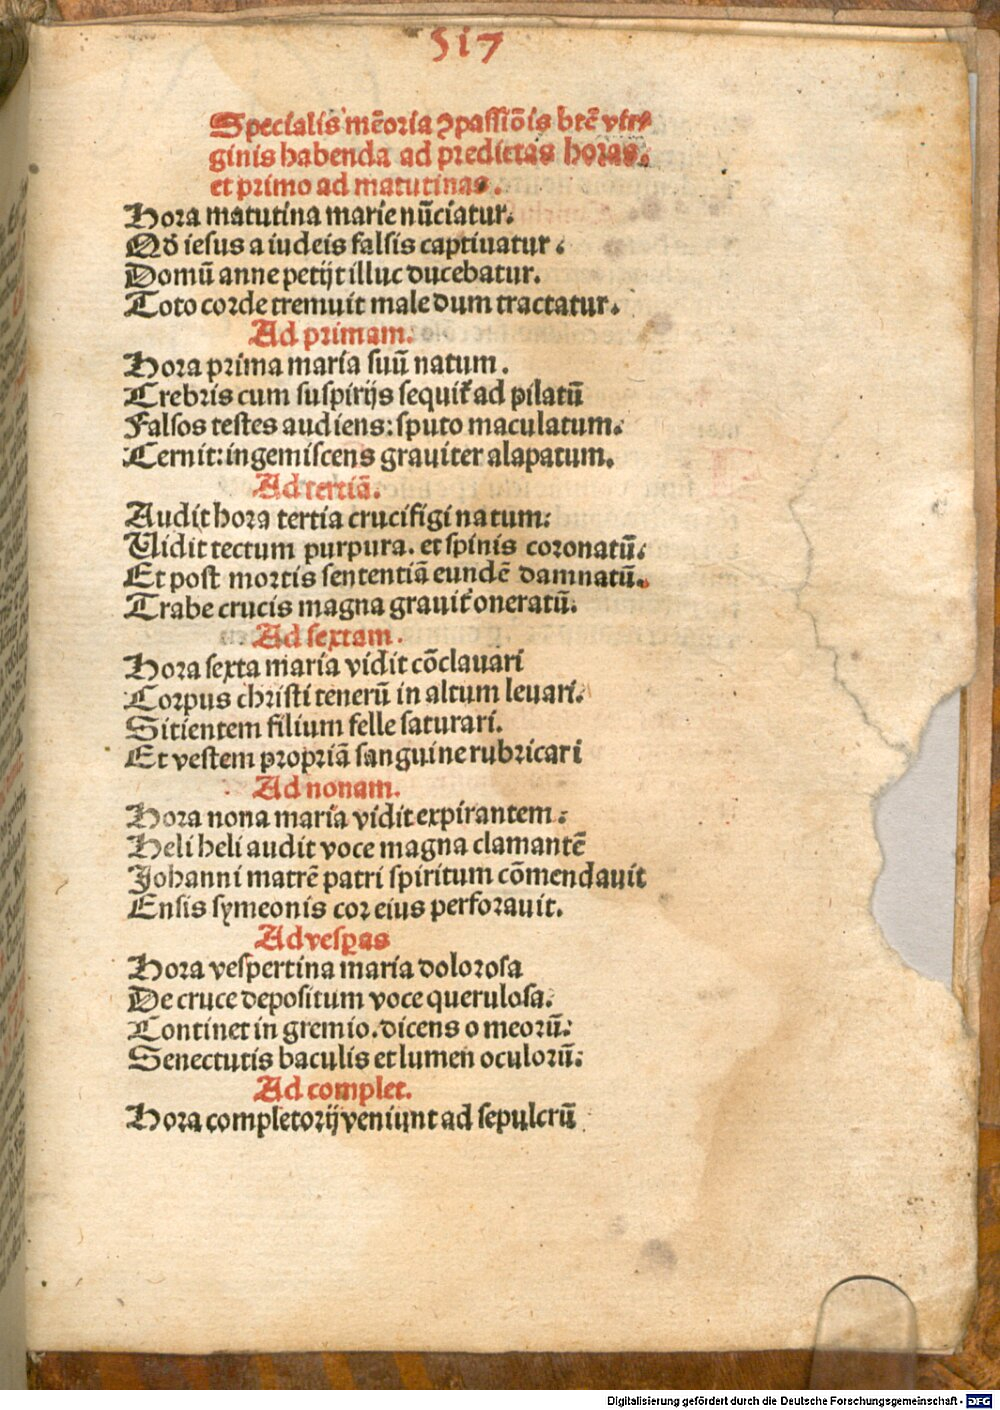 517
Specialis mēoria ꝯpassiōis btē vir⸗
ginis habenda ad predictas horas.
et primo ad matutinas.
Hora matutina marie nūciatur.
Qđ iesus a iudeis falsis captiuatur:
Domū anne petijt illuc ducebatur.
Toto corde tremuit male dum tractatur.
Ad primam.
Hora prima maria suū natum.
Crebris cum suspirijs sequit᷑ ad pilatū
Falsos testes audiens: sputo maculatum.
Cernit: ingemiscens grauiter alapatum.
Ad tertiā.
Audit hora tertia crucifigi natum:
Uidit tectum purpura. et spinis coronatū:
Et post mortis sententiā eundē damnatū.
Trabe crucis magna grauit᷑ oneratū.
Ad sextam.
Hora sexta maria vidit cōclauari
Corpus christi tenerū in altum leuari.
Sitientem filium felle saturari.
Et vestem propriā sanguine rubricari
Ad nonam.
Hora nona maria vidit expirantem:
Heli heli audit voce magna clamantē
Johanni matrē patri spiritum cōmendauit
Ensis symeonis cor eius perforauit.
Ad vesꝑas
Hora vespertina maria dolorosa
De cruce depositum voce querulosa.
Continet in gremio. dicens o meorū:
Senectutis baculis et lumen oculorū:
Ad complet.
Hora completorij veniunt ad sepulcrū
Digitalisierung gefördert durch die Deutsche Forschungsgemeinschaft - DFG